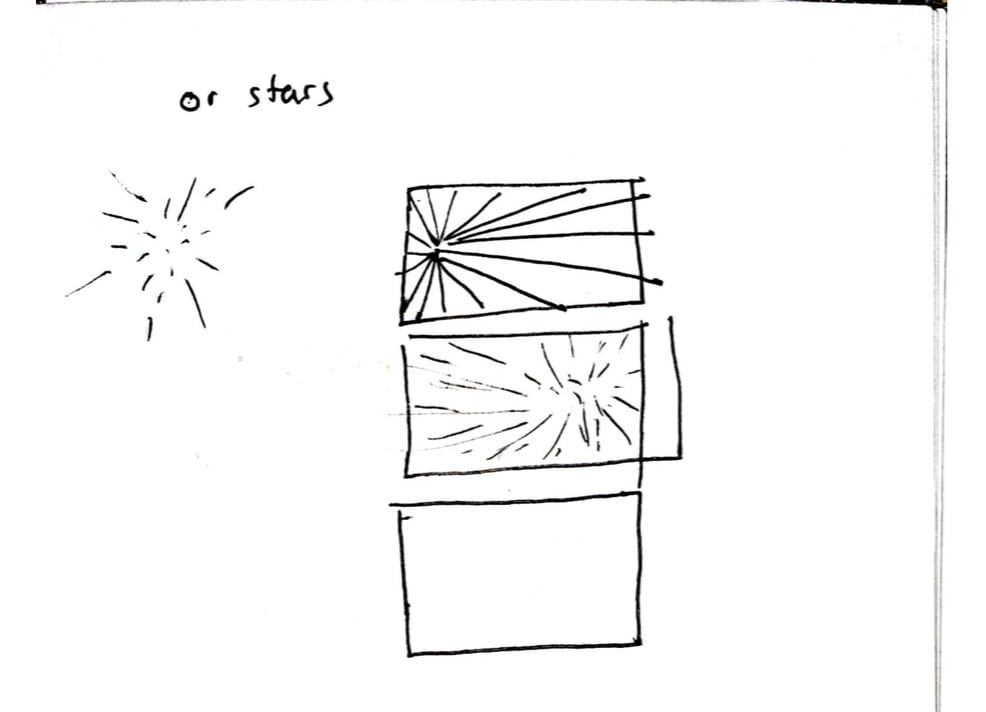 or stars